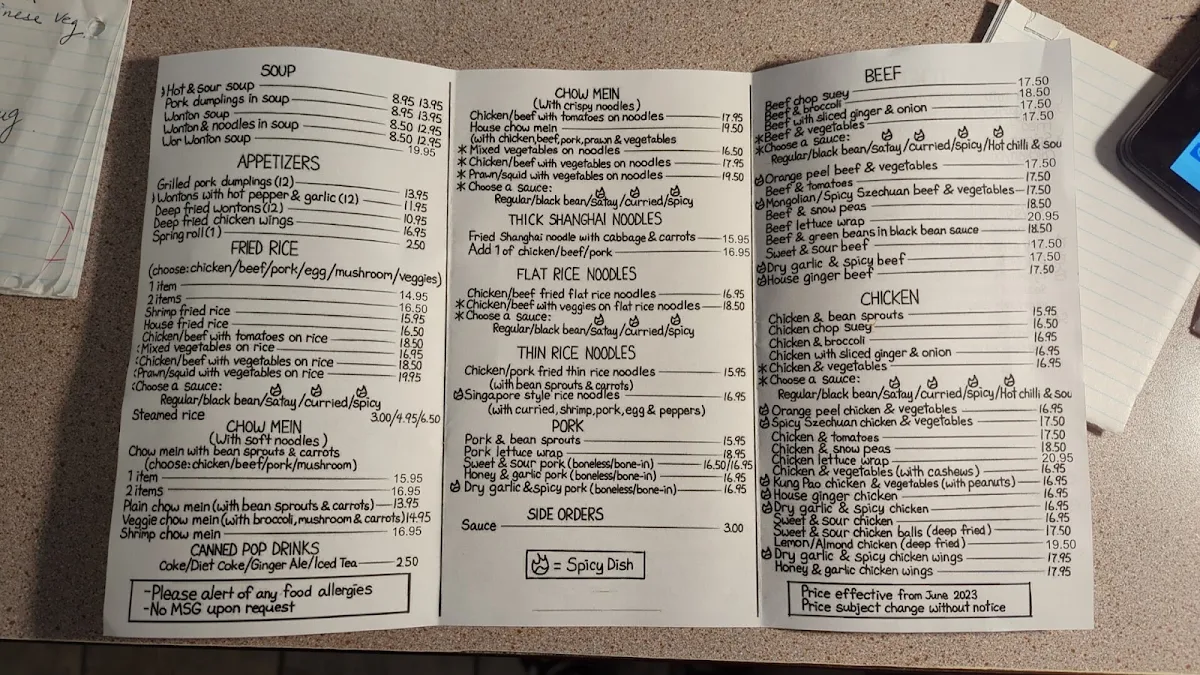 nese Veg
ug
SOUP
Hot & sour soup 8.95 13.95
Pork dumplings in soup 8.95 13.95
Wonton soup 8.50 12.95
Wonton & noodles in soup 8.50 12.95
Wor Wonton soup 19.95
APPETIZERS
Grilled pork dumplings (12) 13.95
Wontons with hot pepper & garlic (12) 11.95
Deep fried wontons (12) 10.95
Deep fried chicken wings 16.95
Spring roll (1) 2.50
FRIED RICE
(choose: chicken/beef/pork/egg/mushroom/veggies)
1 item 14.95
2 items 16.50
Shrimp fried rice 15.95
House fried rice 16.50
Chicken/beef with tomatoes on rice 18.50
Mixed vegetables on rice 16.95
Chicken/beef with vegetables on rice 18.50
Prawn/squid with vegetables on rice 19.95
Choose a sauce:
Regular/black bean/satay/curried/spicy
Steamed rice 3.00/4.95/6.50
CHOW MEIN
(With soft noodles)
Chow mein with bean sprouts & carrots
(choose: chicken/beef/pork/mushroom)
1 item 15.95
2 items 16.95
Plain chow mein (with bean sprouts & carrots) 13.95
Veggie chow mein (with broccoli, mushroom & carrots) 14.95
Shrimp chow mein 16.95
CANNED POP DRINKS
Coke/Diet Coke/Ginger Ale/Iced Tea 2.50
-Please alert of any food allergies
-No MSG upon request
CHOW MEIN
(With crispy noodles)
Chicken/beef with tomatoes on noodles 17.95
House chow mein 19.50
(with chicken, beef, pork, prawn & vegetables
* Mixed vegetables on noodles 16.50
* Chicken/beef with vegetables on noodles 17.95
* Prawn/squid with vegetables on noodles 19.50
* Choose a sauce:
Regular/black bean/satay/curried/spicy
THICK SHANGHAI NOODLES
Fried Shanghai noodle with cabbage & carrots 15.95
Add 1 of chicken/beef/pork 16.95
FLAT RICE NOODLES
Chicken/beef fried flat rice noodles 16.95
* Chicken/beef with veggies on flat rice noodles 18.50
* Choose a sauce:
Regular/black bean/satay/curried/spicy
THIN RICE NOODLES
Chicken/pork fried thin rice noodles 15.95
(with bean sprouts & carrots)
Singapore style rice noodles 16.95
(with curried, shrimp, pork, egg & peppers)
PORK
Pork & bean sprouts 15.95
Pork lettuce wrap 18.95
Sweet & sour pork (boneless/bone-in) 16.50/16.95
Honey & garlic pork (boneless/bone-in) 16.95
Dry garlic & spicy pork (boneless/bone-in) 16.95
SIDE ORDERS
Sauce 3.00
= Spicy Dish
BEEF
Beef chop suey 17.50
Beef & broccoli 18.50
Beef with sliced ginger & onion 17.50
* Beef & vegetables 17.50
* Choose a sauce:
Regular/black bean/satay/curried/spicy/Hot chilli & sou
Orange peel beef & vegetables 17.50
Beef & tomatoes 17.50
Mongolian/Spicy Szechuan beef & vegetables 17.50
Beef & snow peas 18.50
Beef lettuce wrap 20.95
Beef & green beans in black bean sauce 18.50
Sweet & sour beef 17.50
Dry garlic & spicy beef 17.50
House ginger beef 17.50
CHICKEN
Chicken & bean sprouts 15.95
Chicken chop suey 16.50
Chicken & broccoli 16.95
Chicken with sliced ginger & onion 16.95
* Chicken & vegetables 16.95
* Choose a sauce:
Regular/black bean/satay/curried/spicy/Hot chilli & sou
Orange peel chicken & vegetables 16.95
Spicy Szechuan chicken & vegetables 17.50
Chicken & tomatoes 17.50
Chicken & snow peas 18.50
Chicken lettuce wrap 20.95
Chicken & vegetables (with cashews) 16.95
Kung Pao chicken & vegetables (with peanuts) 16.95
House ginger chicken 16.95
Dry garlic & spicy chicken 16.95
Sweet & sour chicken 16.95
Sweet & sour chicken balls (deep fried) 17.50
Lemon/Almond chicken (deep fried) 19.50
Dry garlic & spicy chicken wings 17.95
Honey & garlic chicken wings 17.95
Price effective from June 2023
Price subject change without notice